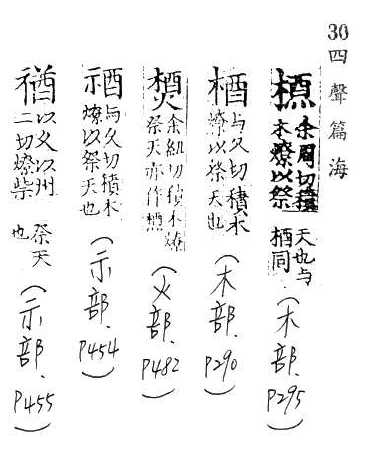 30四聲篇海
余周切積
木燎以祭
天也与
梄同
(木部. P295)
梄
与久切積木
燎以祭天也
(木部. P290)
槱
余糺切積木燎
祭天亦作梄
(火部. P482)
与久切積木
燎以祭天也
(示部. P454)
禉
以久以州
二切燎柴
祭天
也
(示部. P455)